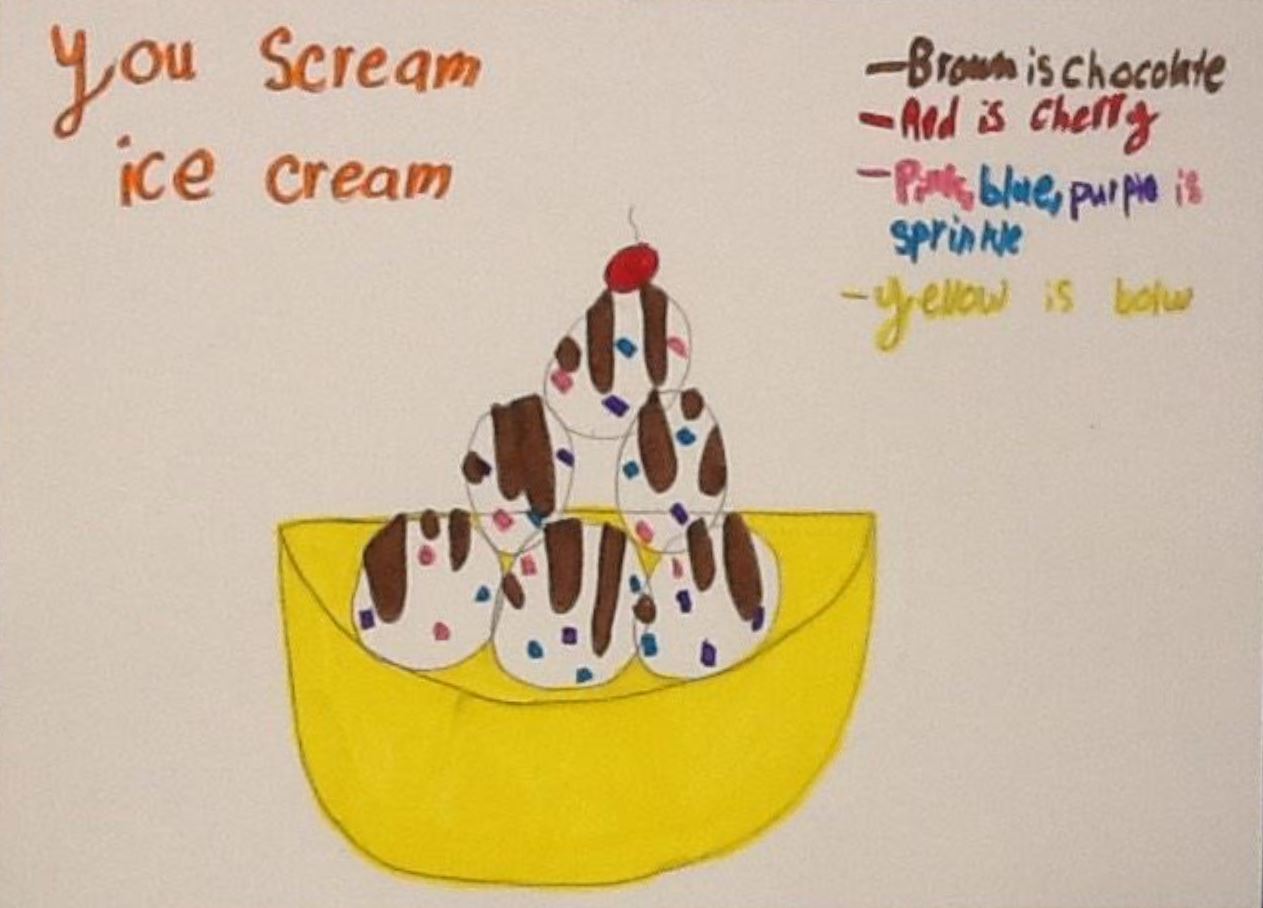 You Scream
ice cream
-Brown is chocolate
-Red is cherry
-Pink, blue, purple is
sprinkle
-yellow is bolw